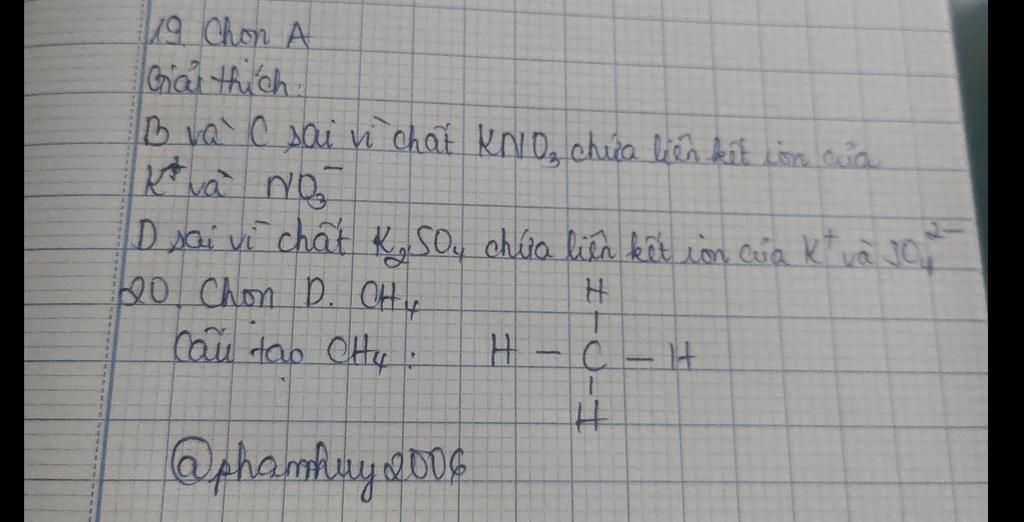 19. Chọn A
Giải thích:
B và C sai vì chất KNO₃ chứa liên kết ion của
K⁺ và NO₃⁻
D sai vì chất K₂SO₄ chứa liên kết ion của K⁺ và SO₄²⁻
20. Chọn D. CH₄
H
|
Cấu tạo CH₄: H – C – H
|
H
@phamhuy2006